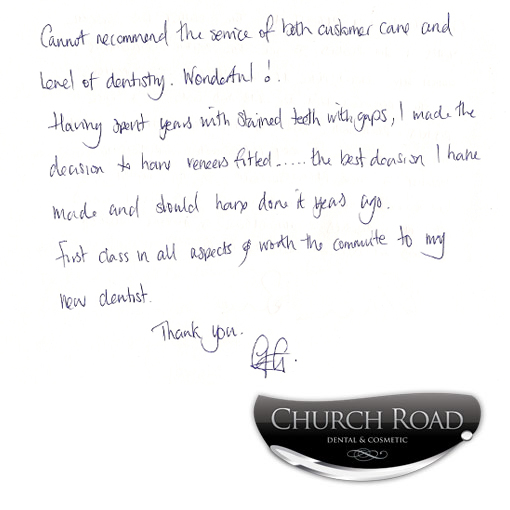 Cannot recommend the service of both customer care and
level of dentistry. Wonderful!
Having spent years with stained teeth with gaps, I made the
decision to have veneers fitted...... the best decision I have
made and should have done it years ago.
First class in all aspects & worth the commute to my
new dentist.
Thank you.
CHURCH ROAD
DENTAL & COSMETIC